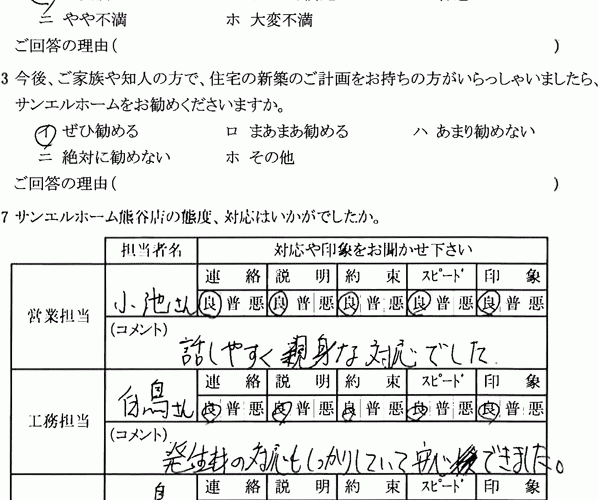 ニ やや不満 ホ 大変不満
ご回答の理由( )
3 今後、ご家族や知人の方で、住宅の新築のご計画をお持ちの方がいらっしゃいましたら、
サンエルホームをお勧めくださいますか。
イ ぜひ勧める ロ まあまあ勧める ハ あまり勧めない
ニ 絶対に勧めない ホ その他
ご回答の理由( )
7 サンエルホーム熊谷店の態度、対応はいかがでしたか。
担当者名 対応や印象をお聞かせ下さい
営業担当 小池さん 連絡 説明 約束 スピード 印象
良 普 悪 良 普 悪 良 普 悪 良 普 悪 良 普 悪
(コメント)
話しやすく親身な対応でした
工務担当 白鳥さん 連絡 説明 約束 スピード 印象
良 普 悪 良 普 悪 良 普 悪 良 普 悪 良 普 悪
(コメント)
の対応もしっかりしていて安心できました。
連絡 説明 約束 スピード 印象